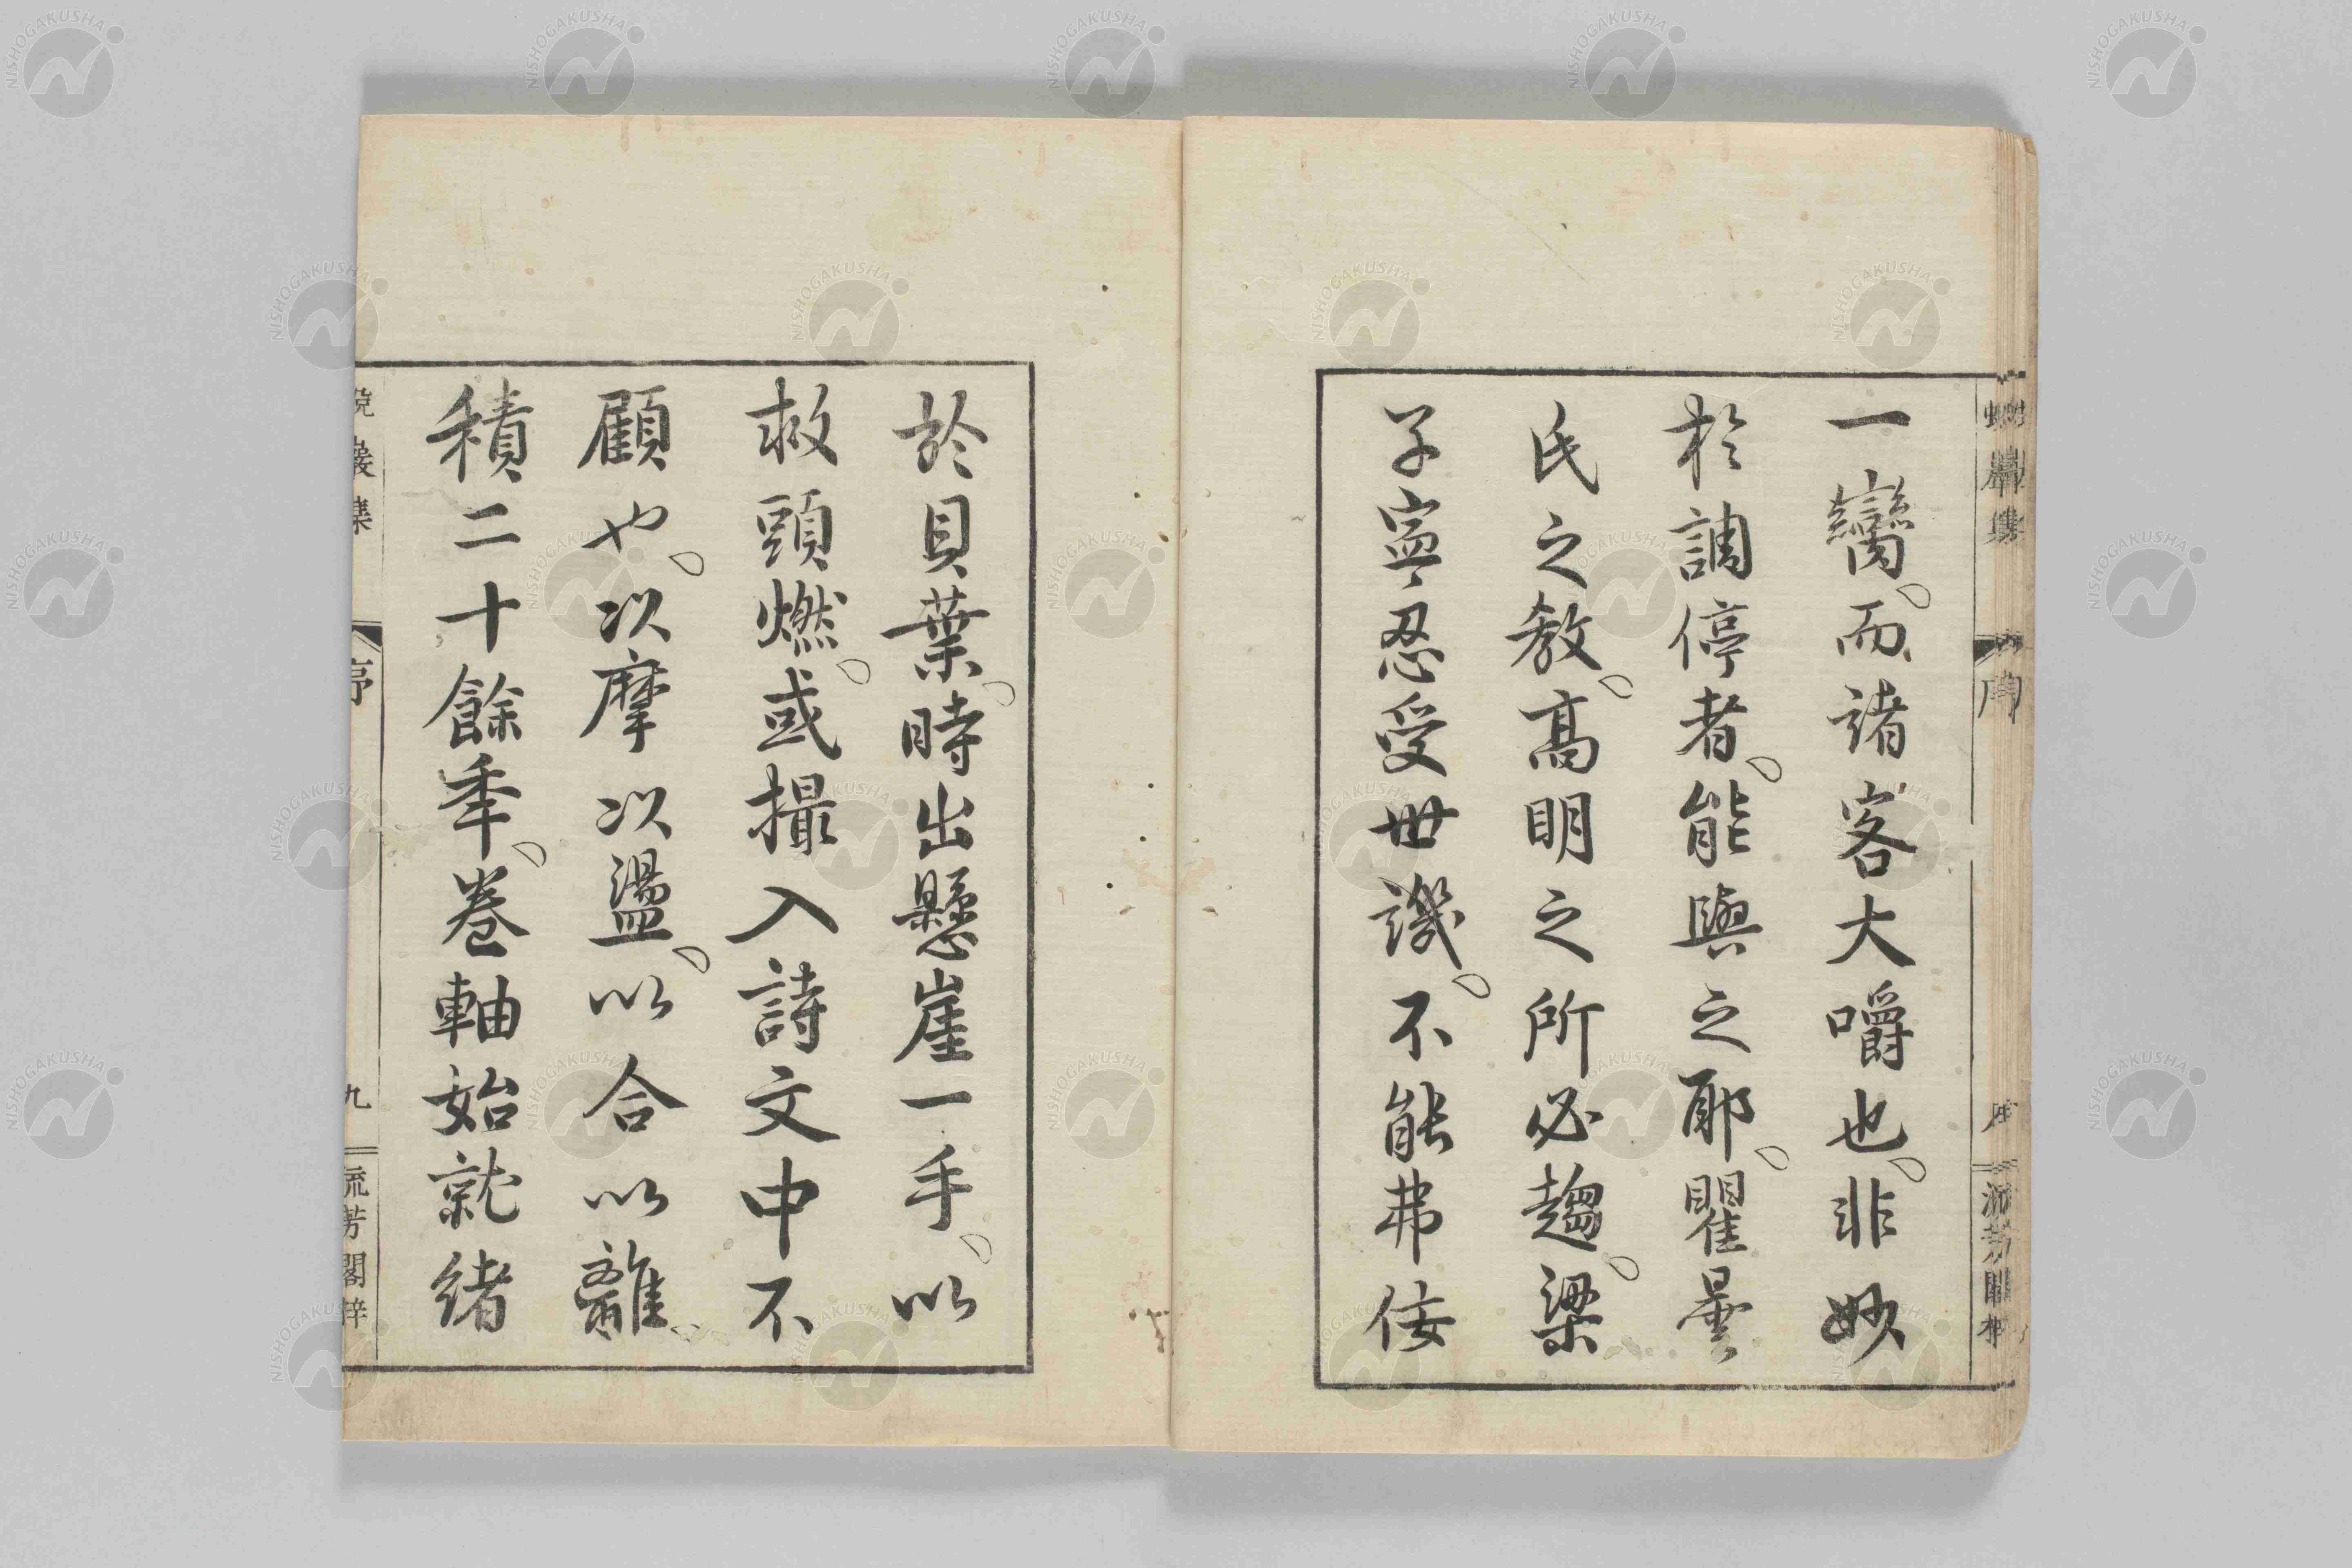 一臠。而諸客大嚼也。非妙
於調停者。能與之耶。瞿曇
氏之教。高明之所必趨。梁
子寧忍受世譏。不能弗佞
於貝葉。時出懸崖一手。以
救頭燃。或撮入詩文中不
顧也。以摩以盪。以合以離。
積二十餘年。卷軸始就緒
蛻巖集
序
九
流芳閣梓
NISHOGAKUSHA